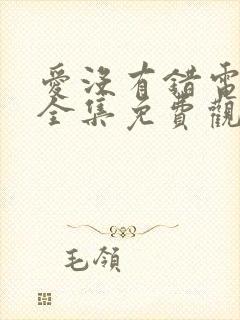 愛沒有錯電
全集免費觀
毛領